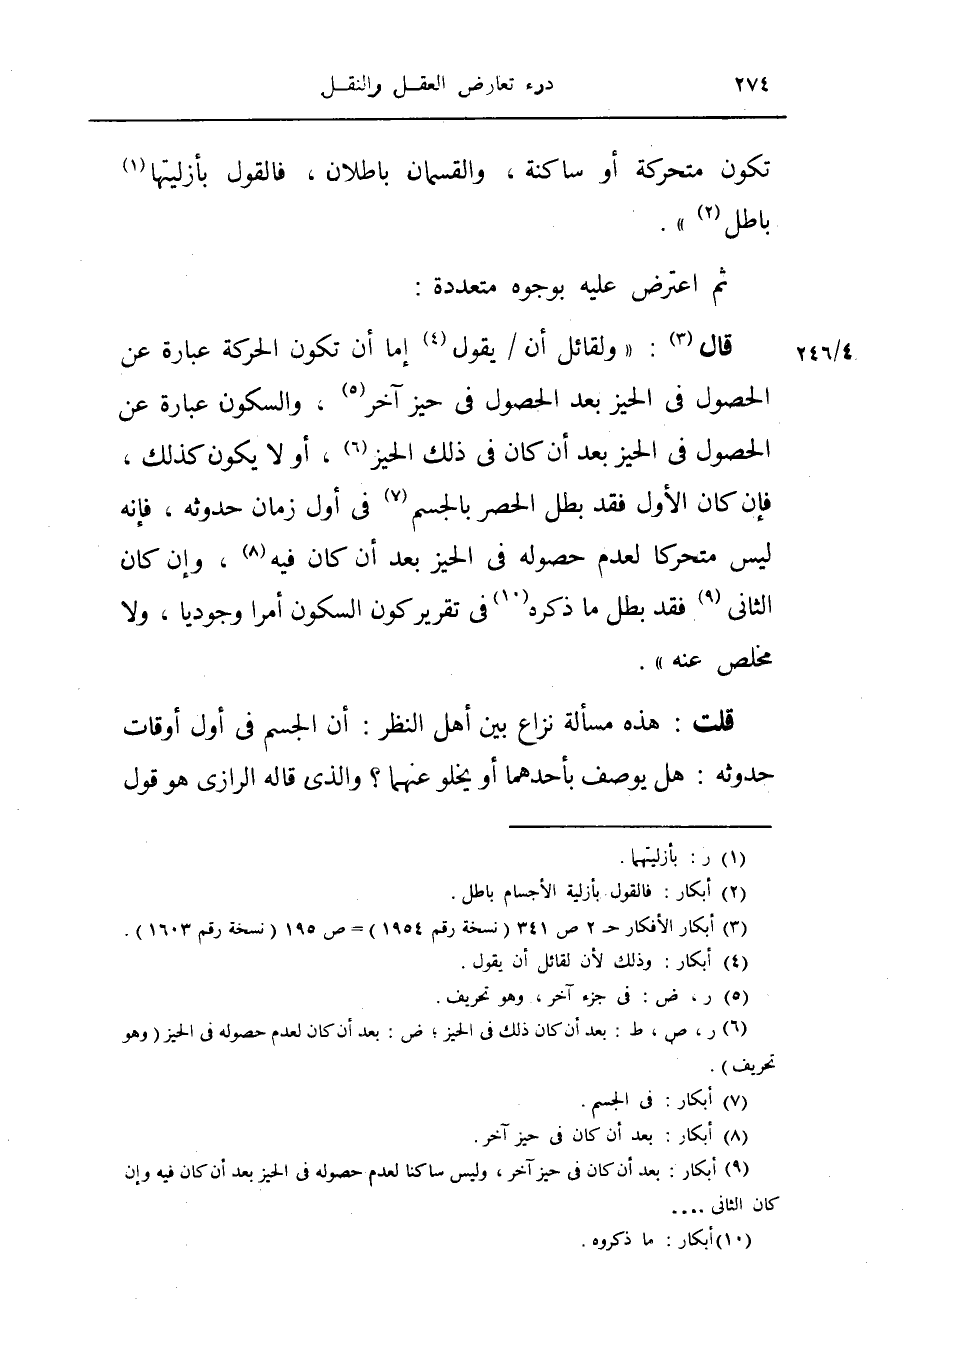 ٢٧٤ درء تعارض العقـل والنقـل
تكون متحركة أو ساكنة ، والقسمان باطلان ، فالقول بأزليتها(١)
باطل(٢) » .
ثم اعترض عليه بوجوه متعددة :
قال(٣) : « ولقائل أن / يقول(٤) إما أن تكون الحركة عبارة عن ٢٤٦/٤
الحصول فى الحيز بعد الحصول فى حيز آخر(٥) ، والسكون عبارة عن
الحصول فى الحيز بعد أن كان فى ذلك الحيز(٦) ، أو لا يكون كذلك ،
فإن كان الأول فقد بطل الحصر بالجسم(٧) فى أول زمان حدوثه ، فإنه
ليس متحركا لعدم حصوله فى الحيز بعد أن كان فيه(٨) ، وإن كان
الثانى(٩) فقد بطل ما ذكره(١٠) فى تقرير كون السكون أمرا وجوديا ، ولا
مخلص عنه » .
قلت : هذه مسألة نزاع بين أهل النظر : أن الجسم فى أول أوقات
حدوثه : هل يوصف بأحدهما أو يخلو عنهما ؟ والذى قاله الرازى هو قول
(١) ر : بأزليتهما .
(٢) أبكار : فالقول بأزلية الأجسام باطل .
(٣) أبكار الأفكار حـ ٢ ص ٣٤١ ( نسخة رقم ١٩٥٤ ) = ص ١٩٥ ( نسخة رقم ١٦٠٣ ) .
(٤) أبكار : وذلك لأن لقائل أن يقول .
(٥) ر ، ض : فى جزء آخر ، وهو تحريف .
(٦) ر ، ص ، ط : بعد أن كان ذلك فى الحيز ؛ ض : بعد أن كان لعدم حصوله فى الحيز ( وهو
تحريف ) .
(٧) أبكار : فى الجسم .
(٨) أبكار : بعد أن كان فى حيز آخر .
(٩) أبكار : بعد أن كان فى حيز آخر ، وليس ساكنا لعدم حصوله فى الحيز بعد أن كان فيه وإن
كان الثانى ....
(١٠) أبكار : ما ذكروه .